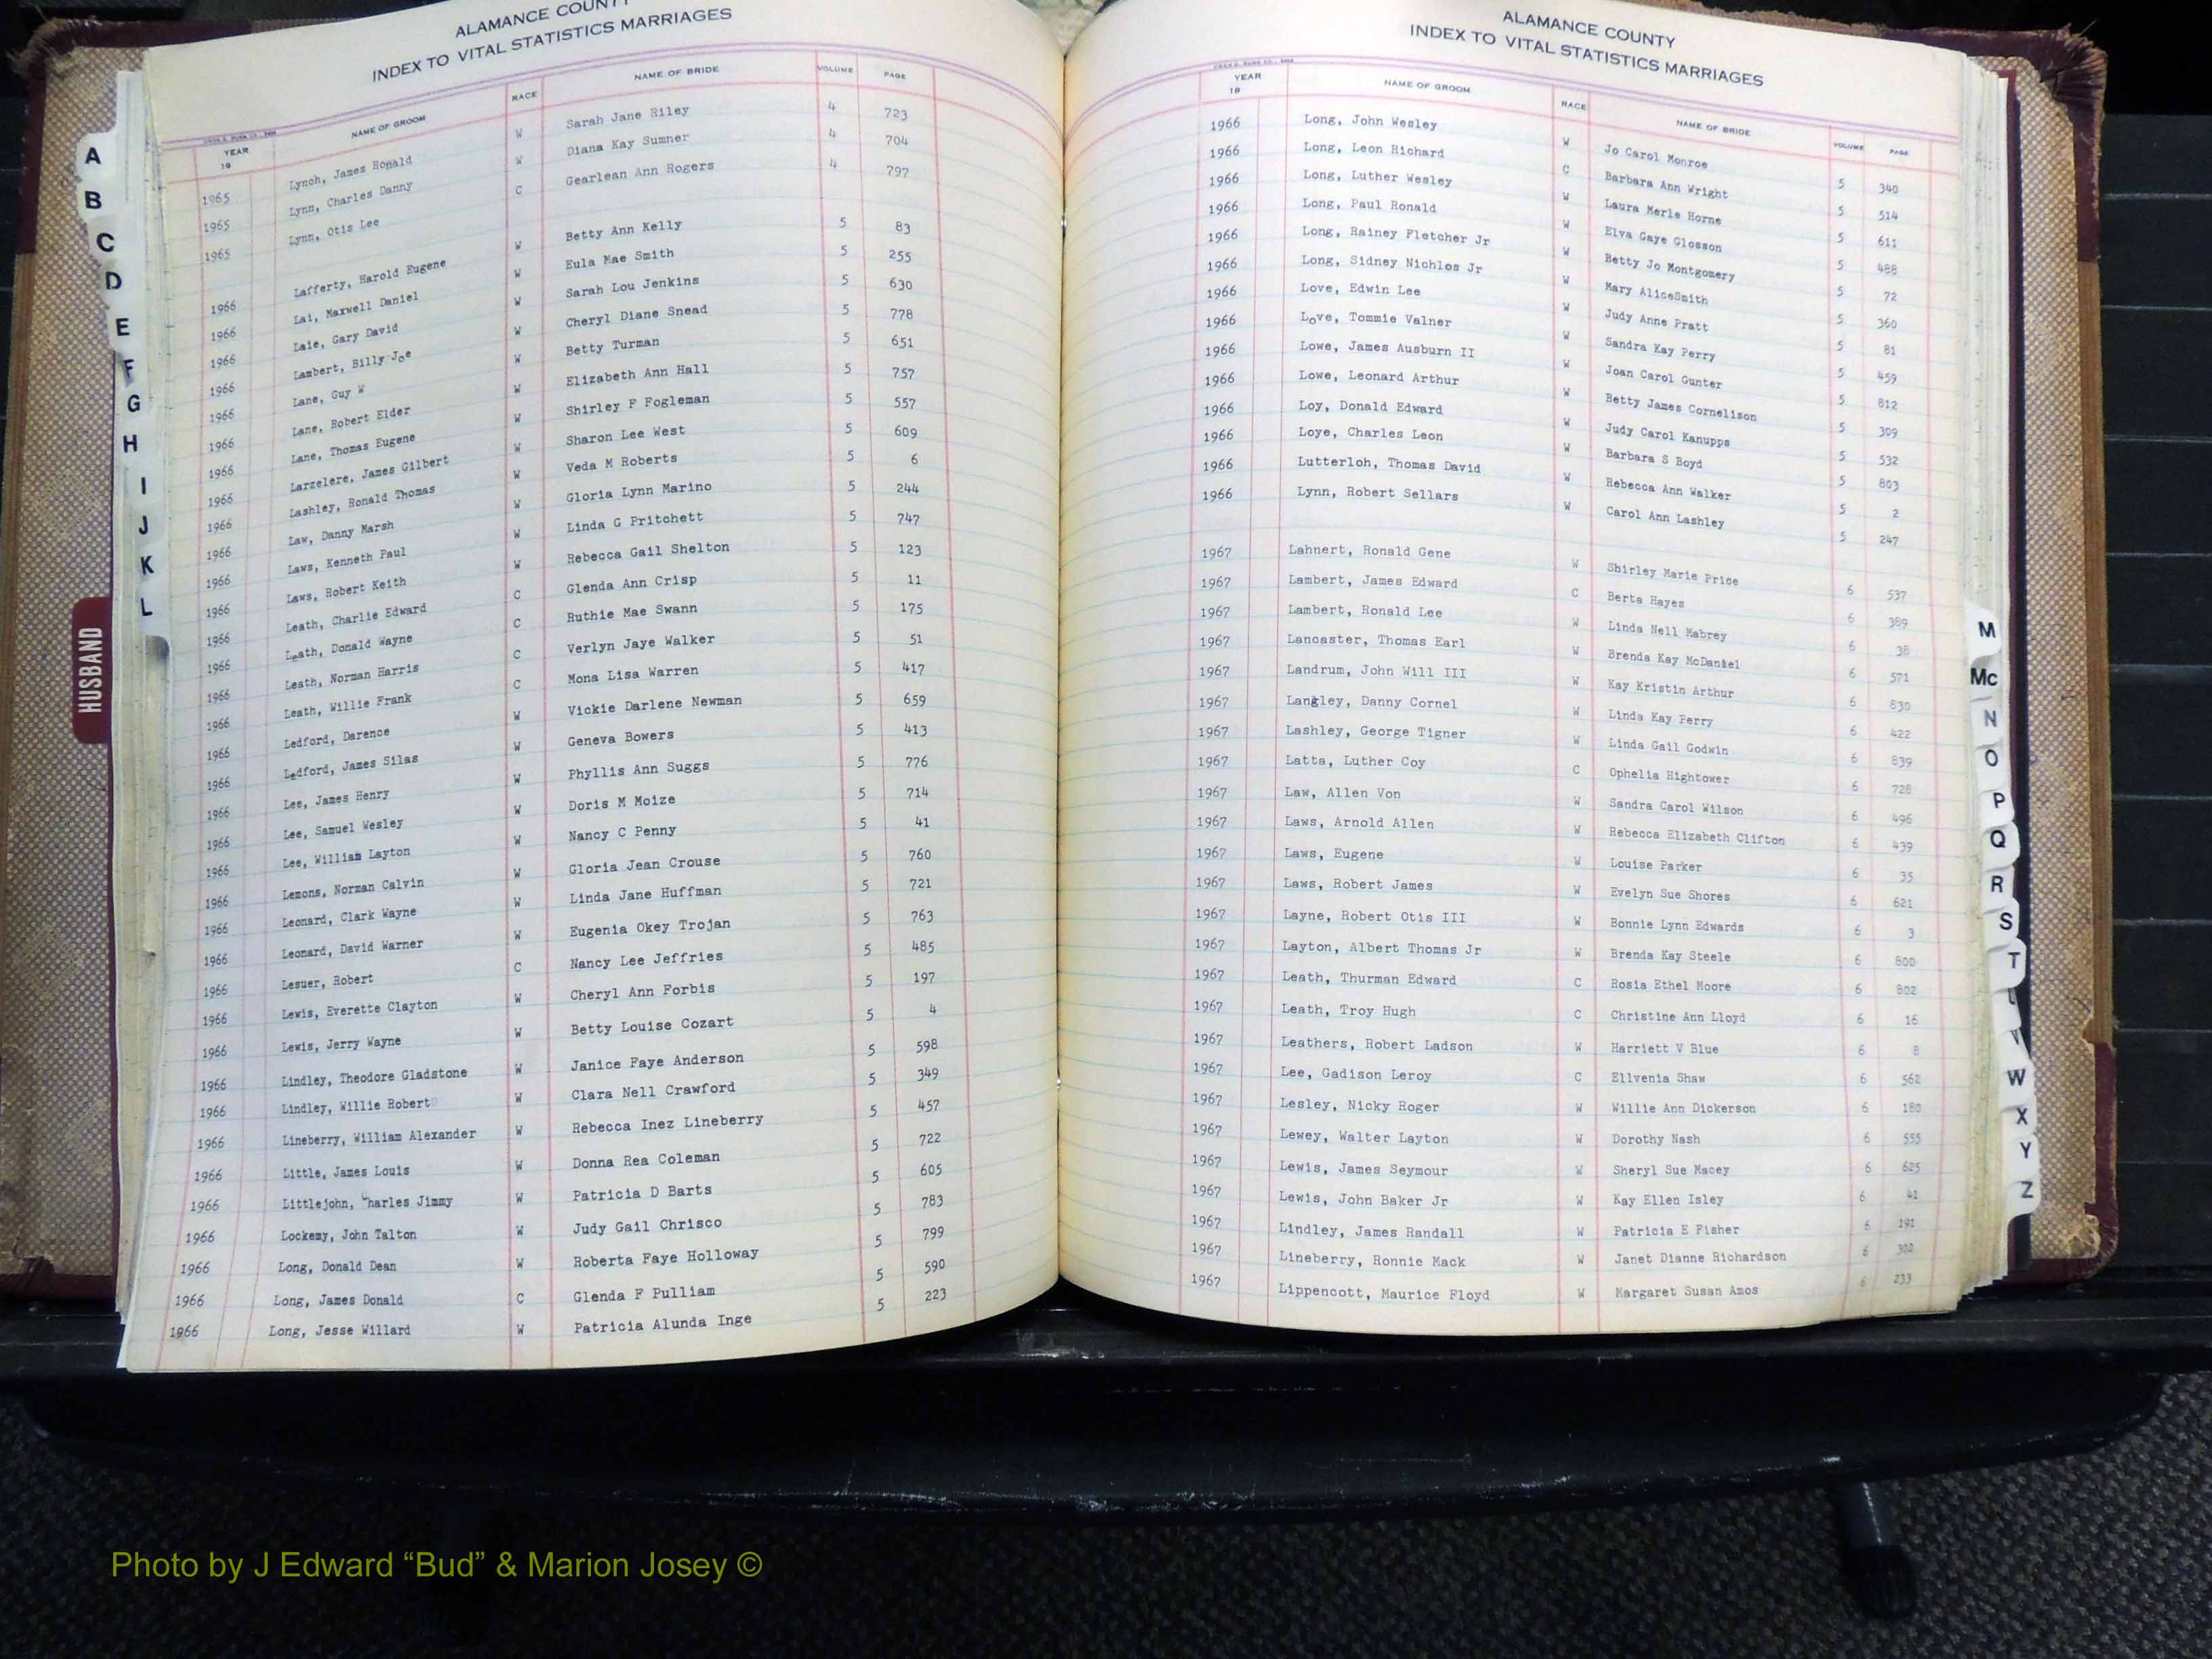 ALAMANCE COUNTY
INDEX TO VITAL STATISTICS MARRIAGES
YEAR 19 NAME OF GROOM RACE NAME OF BRIDE VOLUME PAGE
1965 Lynch, James Ronald W Sarah Jane Riley 4 723
1965 Lynn, Charles Danny W Diana Kay Sumner 4 704
1965 Lynn, Otis Lee C Gearlean Ann Rogers 4 797
1966 Lafferty, Harold Eugene W Betty Ann Kelly 5 83
1966 Lai, Maxwell Daniel W Eula Mae Smith 5 255
1966 Laie, Gary David W Sarah Lou Jenkins 5 630
1966 Lambert, Billy Joe W Cheryl Diane Snead 5 778
1966 Lane, Guy W W Betty Turman 5 651
1966 Lane, Robert Elder W Elizabeth Ann Hall 5 757
1966 Lane, Thomas Eugene W Shirley F Fogleman 5 557
1966 Larzelere, James Gilbert W Sharon Lee West 5 609
1966 Lashley, Ronald Thomas W Veda M Roberts 5 6
1966 Law, Danny Marsh W Gloria Lynn Marino 5 244
1966 Laws, Kenneth Paul W Linda G Pritchett 5 747
1966 Laws, Robert Keith W Rebecca Gail Shelton 5 123
1966 Leath, Charlie Edward C Glenda Ann Crisp 5 11
1966 Leath, Donald Wayne C Ruthie Mae Swann 5 175
1966 Leath, Norman Harris C Verlyn Jaye Walker 5 51
1966 Leath, Willie Frank C Mona Lisa Warren 5 417
1966 Ledford, Darence W Vickie Darlene Newman 5 659
1966 Ledford, James Silas W Geneva Bowers 5 413
1966 Lee, James Henry W Phyllis Ann Suggs 5 776
1966 Lee, Samuel Wesley W Doris M Moize 5 714
1966 Lee, William Layton W Nancy C Penny 5 41
1966 Lemons, Norman Calvin W Gloria Jean Crouse 5 760
1966 Leonard, Clark Wayne W Linda Jane Huffman 5 721
1966 Leonard, David Warner W Eugenia Okey Trojan 5 763
1966 Lesuer, Robert C Nancy Lee Jeffries 5 485
1966 Lewis, Everette Clayton W Cheryl Ann Forbis 5 197
1966 Lewis, Jerry Wayne W Betty Louise Cozart 5 4
1966 Lindley, Theodore Gladstone W Janice Faye Anderson 5 598
1966 Lindley, Willie Robert W Clara Nell Crawford 5 349
1966 Lineberry, William Alexander W Rebecca Inez Lineberry 5 457
1966 Little, James Louis W Donna Rea Coleman 5 722
1966 Littlejohn, Charles Jimmy W Patricia D Barts 5 605
1966 Lockemy, John Talton W Judy Gail Chrisco 5 783
1966 Long, Donald Dean W Roberta Faye Holloway 5 799
1966 Long, James Donald C Glenda F Pulliam 5 590
1966 Long, Jesse Willard W Patricia Alunda Inge 5 223
ALAMANCE COUNTY
INDEX TO VITAL STATISTICS MARRIAGES
YEAR 19 NAME OF GROOM RACE NAME OF BRIDE VOLUME PAGE
1966 Long, John Wesley W Jo Carol Monroe 5 340
1966 Long, Leon Richard C Barbara Ann Wright 5 514
1966 Long, Luther Wesley W Laura Merle Horne 5 611
1966 Long, Paul Ronald W Elva Gaye Glosson 5 488
1966 Long, Rainey Fletcher Jr W Betty Jo Montgomery 5 72
1966 Long, Sidney Nichlos Jr W Mary AliceSmith 5 360
1966 Love, Edwin Lee W Judy Anne Pratt 5 81
1966 Love, Tommie Valner W Sandra Kay Perry 5 459
1966 Lowe, James Ausburn II W Joan Carol Gunter 5 812
1966 Lowe, Leonard Arthur W Betty James Cornelison 5 309
1966 Loy, Donald Edward W Judy Carol Kanupps 5 532
1966 Loye, Charles Leon W Barbara S Boyd 5 803
1966 Lutterloh, Thomas David W Rebecca Ann Walker 5 2
1966 Lynn, Robert Sellars W Carol Ann Lashley 5 247
1967 Lahnert, Ronald Gene W Shirley Marie Price 6 537
1967 Lambert, James Edward C Berta Hayes 6 389
1967 Lambert, Ronald Lee W Linda Nell Mabrey 6 38
1967 Lancaster, Thomas Earl W Brenda Kay McDaniel 6 571
1967 Landrum, John Will III W Kay Kristin Arthur 6 830
1967 Langley, Danny Cornel W Linda Kay Perry 6 422
1967 Lashley, George Tigner W Linda Gail Godwin 6 839
1967 Latta, Luther Coy C Ophelia Hightower 6 728
1967 Law, Allen Von W Sandra Carol Wilson 6 496
1967 Laws, Arnold Allen W Rebecca Elizabeth Clifton 6 439
1967 Laws, Eugene W Louise Parker 6 35
1967 Laws, Robert James W Evelyn Sue Shores 6 621
1967 Layne, Robert Otis III W Bonnie Lynn Edwards 6 3
1967 Layton, Albert Thomas Jr W Brenda Kay Steele 6 800
1967 Leath, Thurman Edward C Rosia Ethel Moore 6 802
1967 Leath, Troy Hugh C Christine Ann Lloyd 6 16
1967 Leathers, Robert Ladson W Harriett V Blue 6 8
1967 Lee, Gadison Leroy C Ellvenia Shaw 6 562
1967 Lesley, Nicky Roger W Willie Ann Dickerson 6 180
1967 Lewey, Walter Layton W Dorothy Nash 6 555
1967 Lewis, James Seymour W Sheryl Sue Macey 6 625
1967 Lewis, John Baker Jr W Kay Ellen Isley 6 41
1967 Lindley, James Randall W Patricia E Fisher 6 191
1967 Lineberry, Ronnie Mack W Janet Dianne Richardson 6 302
1967 Lippencott, Maurice Floyd W Margaret Susan Amos 6 233
A
B
C
D
E
F
G
H
I
J
K
L
HUSBAND
M
Mc
N
O
P
Q
R
S
T
W
X
Y
Z
Photo by J Edward “Bud” & Marion Josey ©